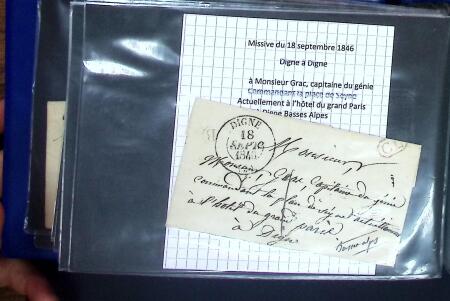 Missive du 18 septembre 1846
Digne à Digne
à Monsieur Grac, capitaine du génie
Commandant la place de Seyne
Actuellement à l'hôtel du grand Paris
à Digne Basses Alpes
DIGNE
18
SEPT
1846
Monsieur,
Monsieur Grac, Capitaine du génie
commandant la place de Seyne actuellement
à l'hotel du grand paris
à Digne
Basses alpes